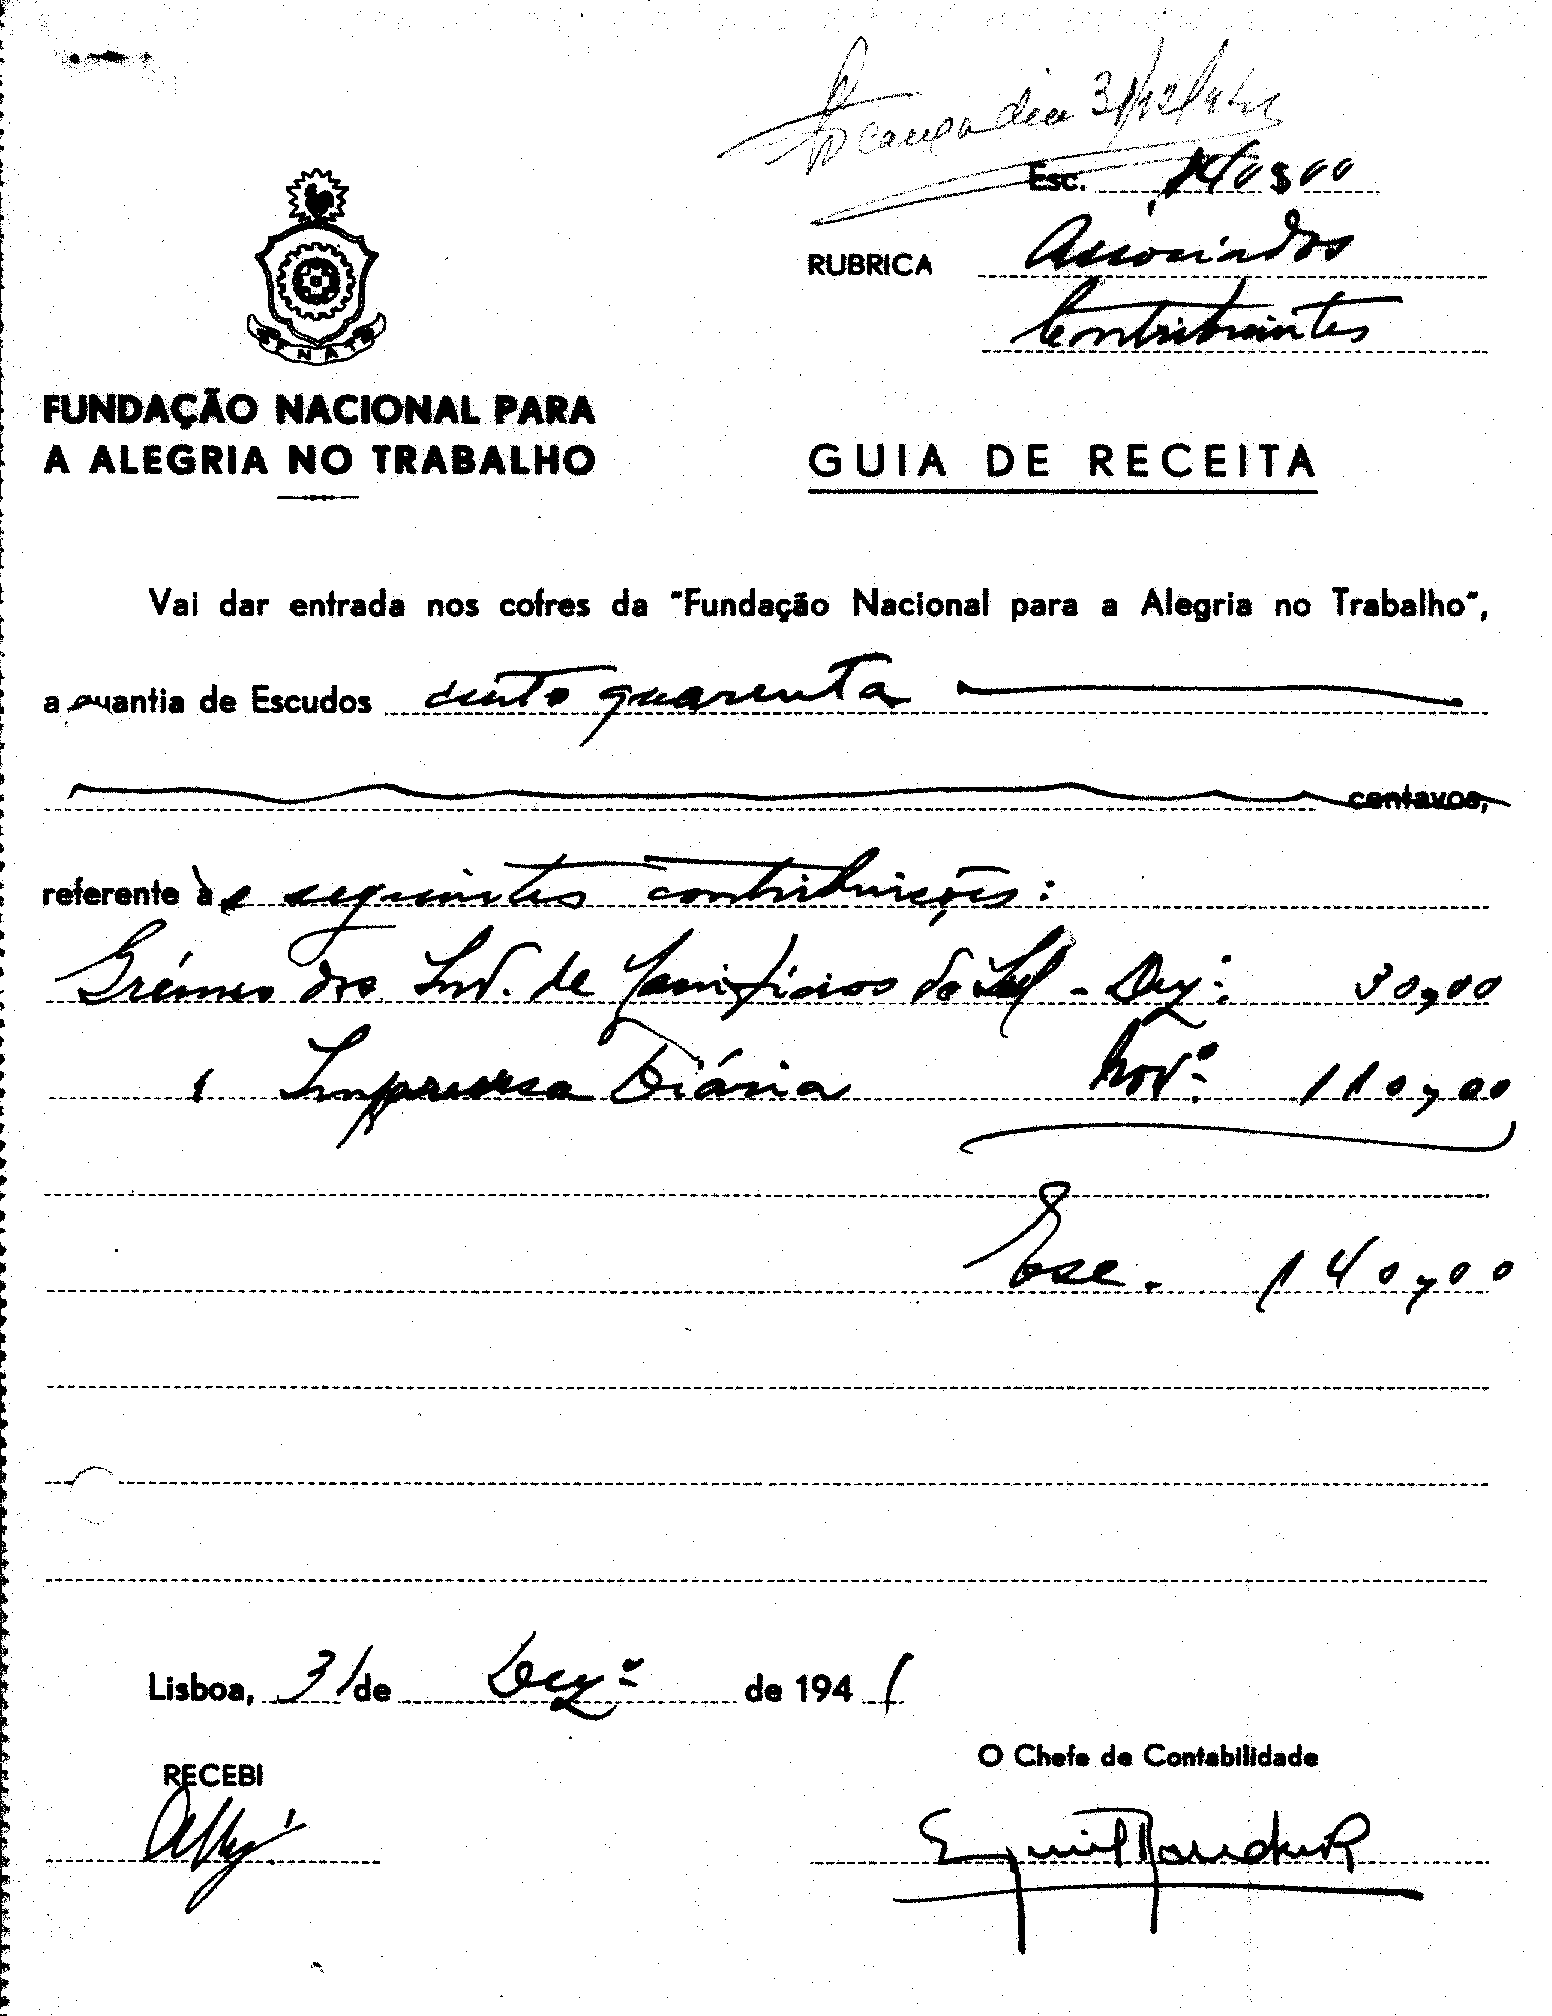 dia 31/12/941
Esc. 140$00
RUBRICA Associados
Contribuintes
FENAT
FUNDAÇÃO NACIONAL PARA
A ALEGRIA NO TRABALHO
GUIA DE RECEITA
Vai dar entrada nos cofres da "Fundação Nacional para a Alegria no Trabalho",
a quantia de Escudos cento quarenta
centavos,
referente às seguintes contribuições:
Grémio dos Ind. de Lanifícios do Sul - Dezº: 30,00
" Imprensa Diária Novº: 110,00
Esc. 140,00
Lisboa, 31 de Dezº de 1941
RECEBI
O Chefe de Contabilidade